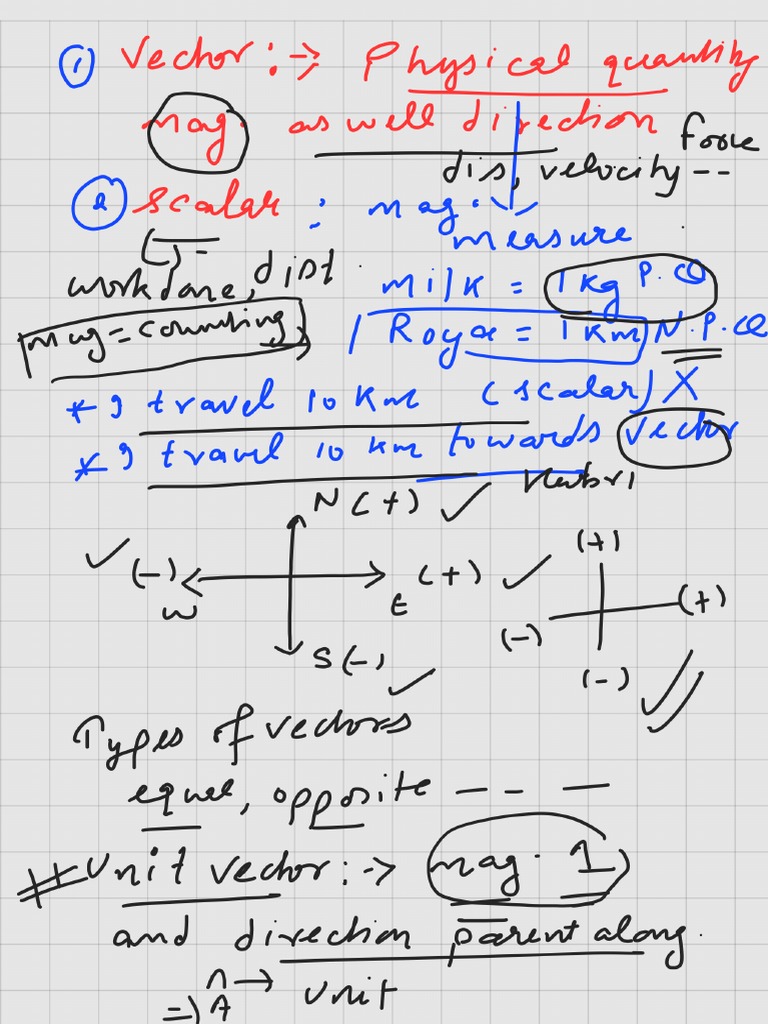 ① Vector :→ Physical quantity
mag. as well direction
force
dis, velocity --
② scalar : mag.
measure
workdone, dist.
milk = 1 kg P.Q
mag = counting
Roya = 1 Km N.P.Q
* I travel 10 Km (scalar) X
* I travel 10 km towards vector
N (+)
(-) W
E (+)
S (-)
(+)
(-) (+)
(-)
Types of vectors
equal, opposite - - -
# Unit vector :→ mag. 1
and direction parent along.
⇒ Â → unit